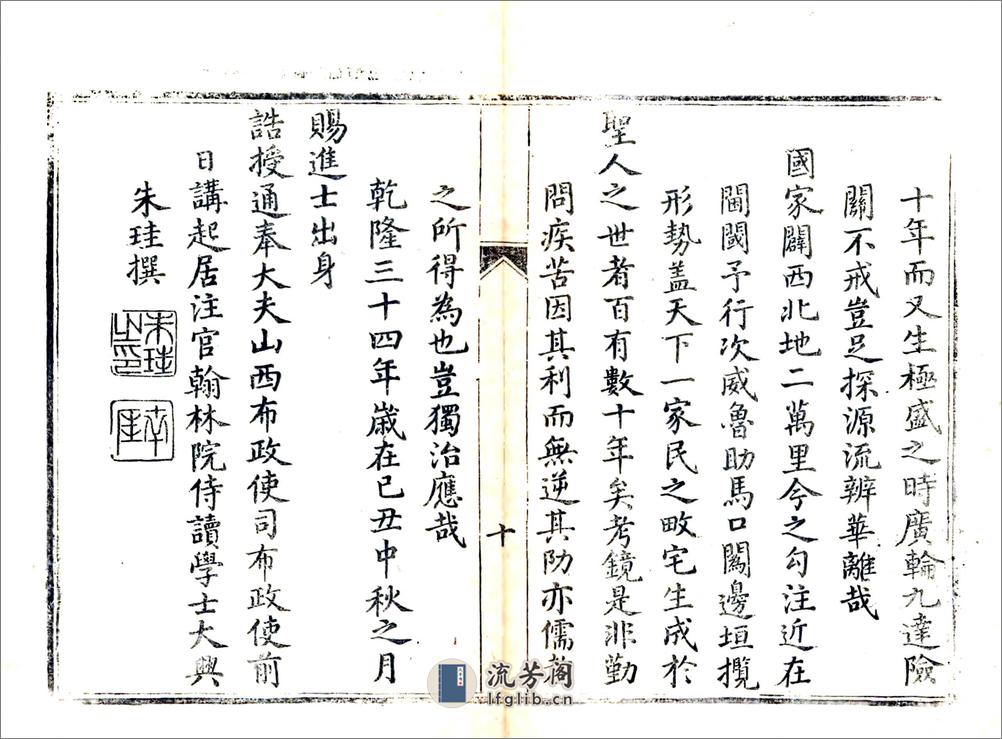 十年而又生極盛之時廣輪九達險
關不戒豈足探源流辨華離哉
國家闢西北地二萬里今之勾注近在
閫閾予行次威魯助馬口闚邊垣攬
形勢盖天下一家民之畋宅生成於
聖人之世者百有數十年矣考鏡是非勤
問疾苦因其利而無逆其防亦儒者
之所得為也豈獨治應哉
乾隆三十四年歲在己丑中秋之月
賜進士出身
誥授通奉大夫山西布政使司布政使前
日講起居注官翰林院侍讀學士大興
朱珪撰
朱珪之印
十
流芳阁
lfglib.cn